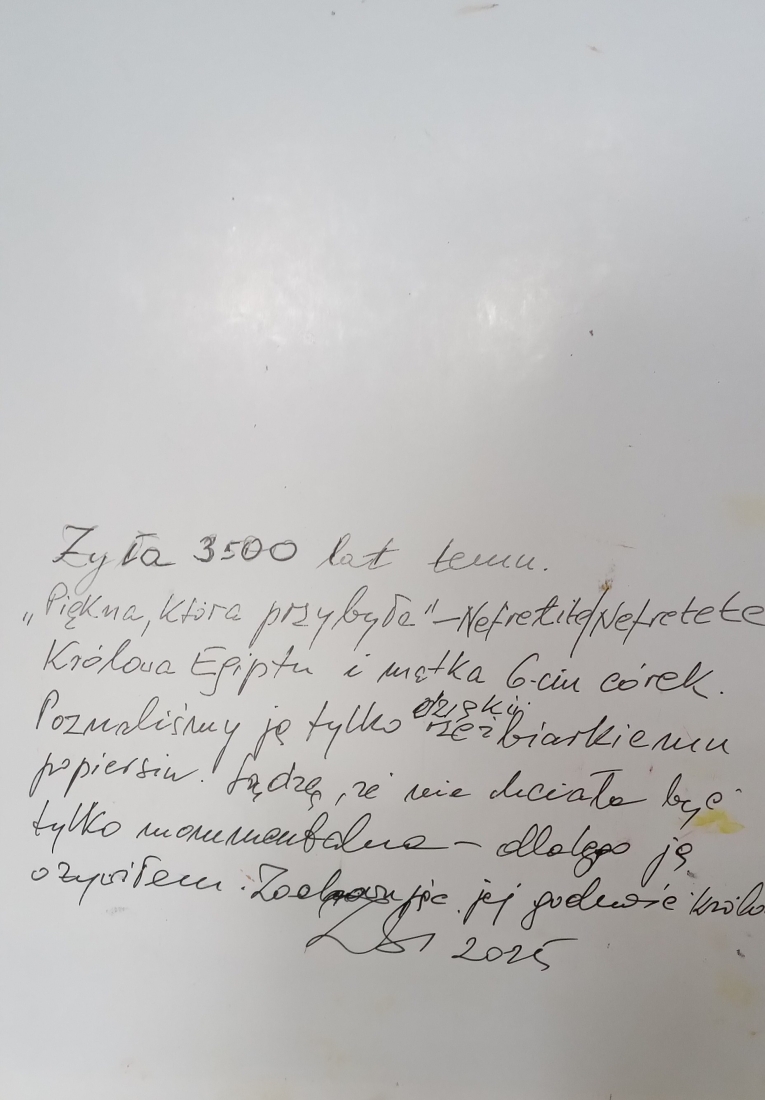 Żyła 3500 lat temu.
„Piękna, która przybyła” – Nefretite/Nefretete
Królowa Egiptu i matka 6-ciu córek.
Poznaliśmy ją tylko dzięki rzeźbiarkiemu
popiersiu. Sądzę, że nie chciała być
tylko monumentalna – dlatego ją
ożywiłem. Zachowując jej godność
2025